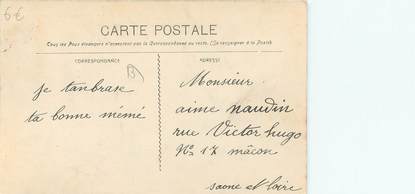 6€
CARTE POSTALE
Tous les Pays étrangers n'acceptent pas la Correspondance au recto. (Se renseigner à la Poste)
CORRESPONDANCE
ADRESSE
B
je tanbrase
ta bonne mémé
Monsieur
aime naudin
rue Victor hugo
No 17 mâcon
saone et loire